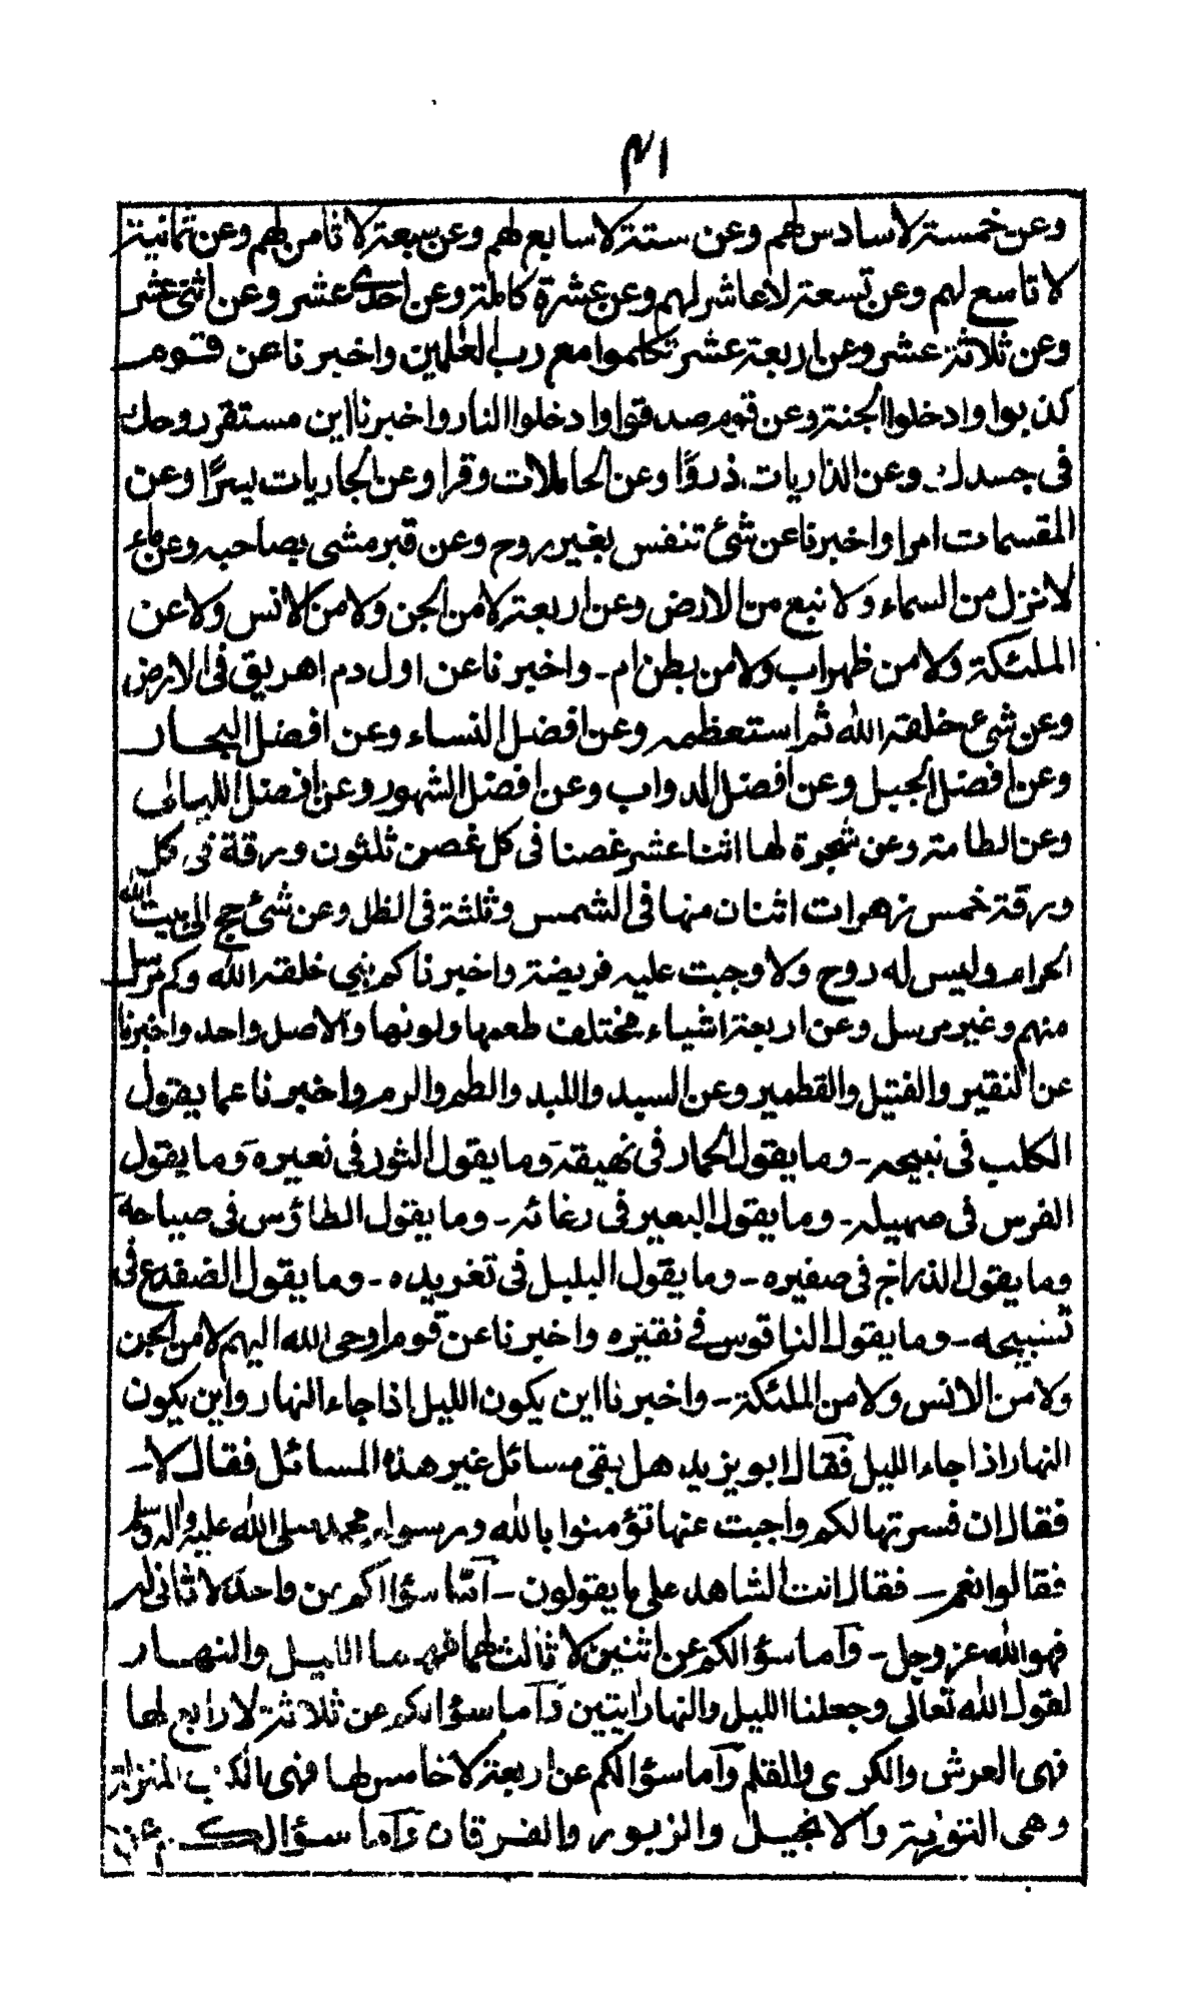 ٣١
وعن خمسة لاسادس لهم وعن ستة لاسابع لهم وعن سبعة لاثامن لهم وعن ثمانية
لاتاسع لهم وعن تسعة لاعاشر لهم وعن عشرة كاملة وعن احدى عشر وعن اثنى عشر
وعن ثلاثة عشر وعن اربعة عشر تكلموا مع رب العٰلمين واخبرنا عن قوم
كذبوا وادخلوا الجنة وعن قوم صدقوا وادخلوا النار واخبرنا اين مستقر روحك
فى جسدك وعن الذاريات ذروًا وعن الحاملات وقرا وعن الجاريات يسرًا وعن
المقسمات امرا واخبرنا عن شئ تنفس بغير روح وعن قبر مشى بصاحبه وعن ماء
لانزل من السماء ولا نبع من الارض وعن اربعة لامن الجن ولا من الانس ولا عن
الملئكة ولا من ظهر اب ولا من بطن ام - واخبرنا عن اول دم اهريق فى الارض
وعن شئ خلقه الله ثم استعظمه وعن افضل النساء وعن افضل البحار
وعن افضل الجبل وعن افضل الدواب وعن افضل الشهور وعن افضل الليالى
وعن الطامة وعن شجرة لها اثنا عشر غصنا فى كل غصن ثلثون ورقة فى كل
ورقة خمس زهرات اثنان منها فى الشمس وثلثة فى الظل وعن شئ حج الى بيت الله
الحرام وليس له روح ولا وجبت عليه فريضة واخبرنا كم نبى خلقه الله وكم مرسل
منهم وغير مرسل وعن اربعة اشياء مختلف طعمها ولونها والاصل واحد واخبرنا
عن النقير والفتيل والقطمير وعن السبد واللبد والطم والرم واخبرنا عما يقول
الكلب فى نبيحه - وما يقول الحمار فى نهيقة وما يقول الثور فى نعيره وما يقول
الفرس فى صهيله - وما يقول البعير فى رغائه - وما يقول الطاؤس فى صياحه
وما يقول الدراج فى صفيره - وما يقول البلبل فى تغريده - وما يقول الضفدع فى
تسبيحه - وما يقول الناقوس فے نقيره واخبرنا عن قوم اوحى الله اليهم لامن الجن
ولا من الانس ولا من الملئكة - واخبرنا اين يكون الليل اذا جاء النهار واين يكون
النهار اذا جاء الليل فقال ابو يزيد هل بقى مسائل غير هذه المسائل فقال لا -
فقال ان فسرتها لكم واجبت عنها تؤمنوا بالله ورسوله محمد صلى الله عليه واله وسلم
فقالوا نعم - فقال انت الشاهد على ما يقولون - اما سؤالكم عن واحد لا ثانى له
فهو الله عز وجل - واما سؤالكم عن اثنين لا ثالث لهما فهما الليل والنهار
لقول الله تعالى وجعلنا الليل والنهار ايتين واما سؤالكم عن ثلاثة لارابع لها
فهى العرش والكرسى والقلم واما سؤالكم عن اربعة لاخامس لها فهى الكتب المنزلة
وهى التورٰية والانجيل والزبور والفرقان واما سؤالكم عن